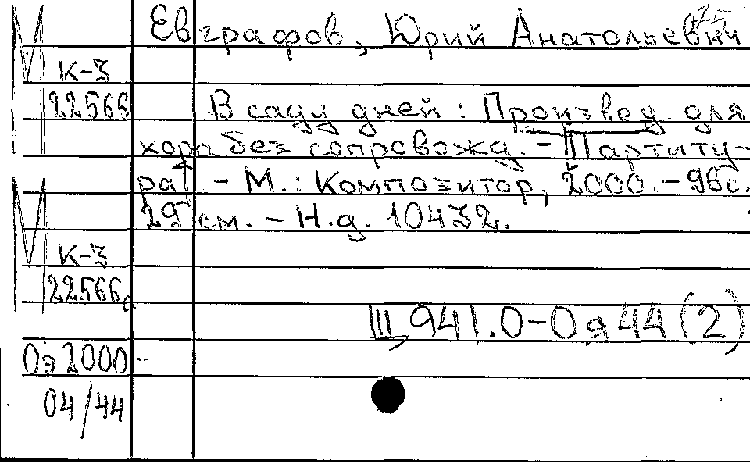 Евграфов, Юрий Анатольевич
К-3
22566 В саду дней: Произвед. для
хора без сопровожд. - Партиту-
ра. - М.: Композитор, 2000. - 96с.
29 см. - Н.д. 10432.
К-3
22566
Щ941.0-0я44(2)
Оэ2000-
04/44